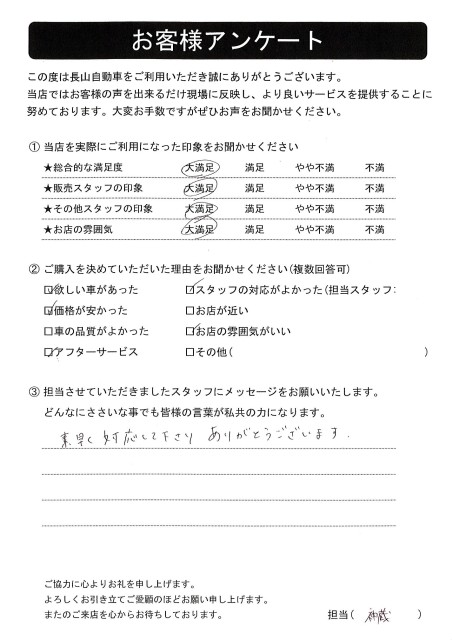 お客様アンケート
この度は長山自動車をご利用いただき誠にありがとうございます。
当店ではお客様の声を出来るだけ現場に反映し、より良いサービスを提供することに
努めております。大変お手数ですがぜひお声をお聞かせください。
① 当店を実際にご利用になった印象をお聞かせください
★総合的な満足度 大満足 満足 やや不満 不満
★販売スタッフの印象 大満足 満足 やや不満 不満
★その他スタッフの印象 大満足 満足 やや不満 不満
★お店の雰囲気 大満足 満足 やや不満 不満
② ご購入を決めていただいた理由をお聞かせください(複数回答可)
☑欲しい車があった ☑スタッフの対応がよかった(担当スタッフ:
☑価格が安かった □お店が近い
□車の品質がよかった ☑お店の雰囲気がいい
☑アフターサービス □その他( )
③ 担当させていただきましたスタッフにメッセージをお願いいたします。
どんなにささいな事でも皆様の言葉が私共の力になります。
素早く対応して下さり ありがとうございます.
ご協力に心よりお礼を申し上げます。
よろしくお引き立てご愛顧のほどお願い申し上げます。
またのご来店を心からお待ちしております。 担当( 神蔵 )